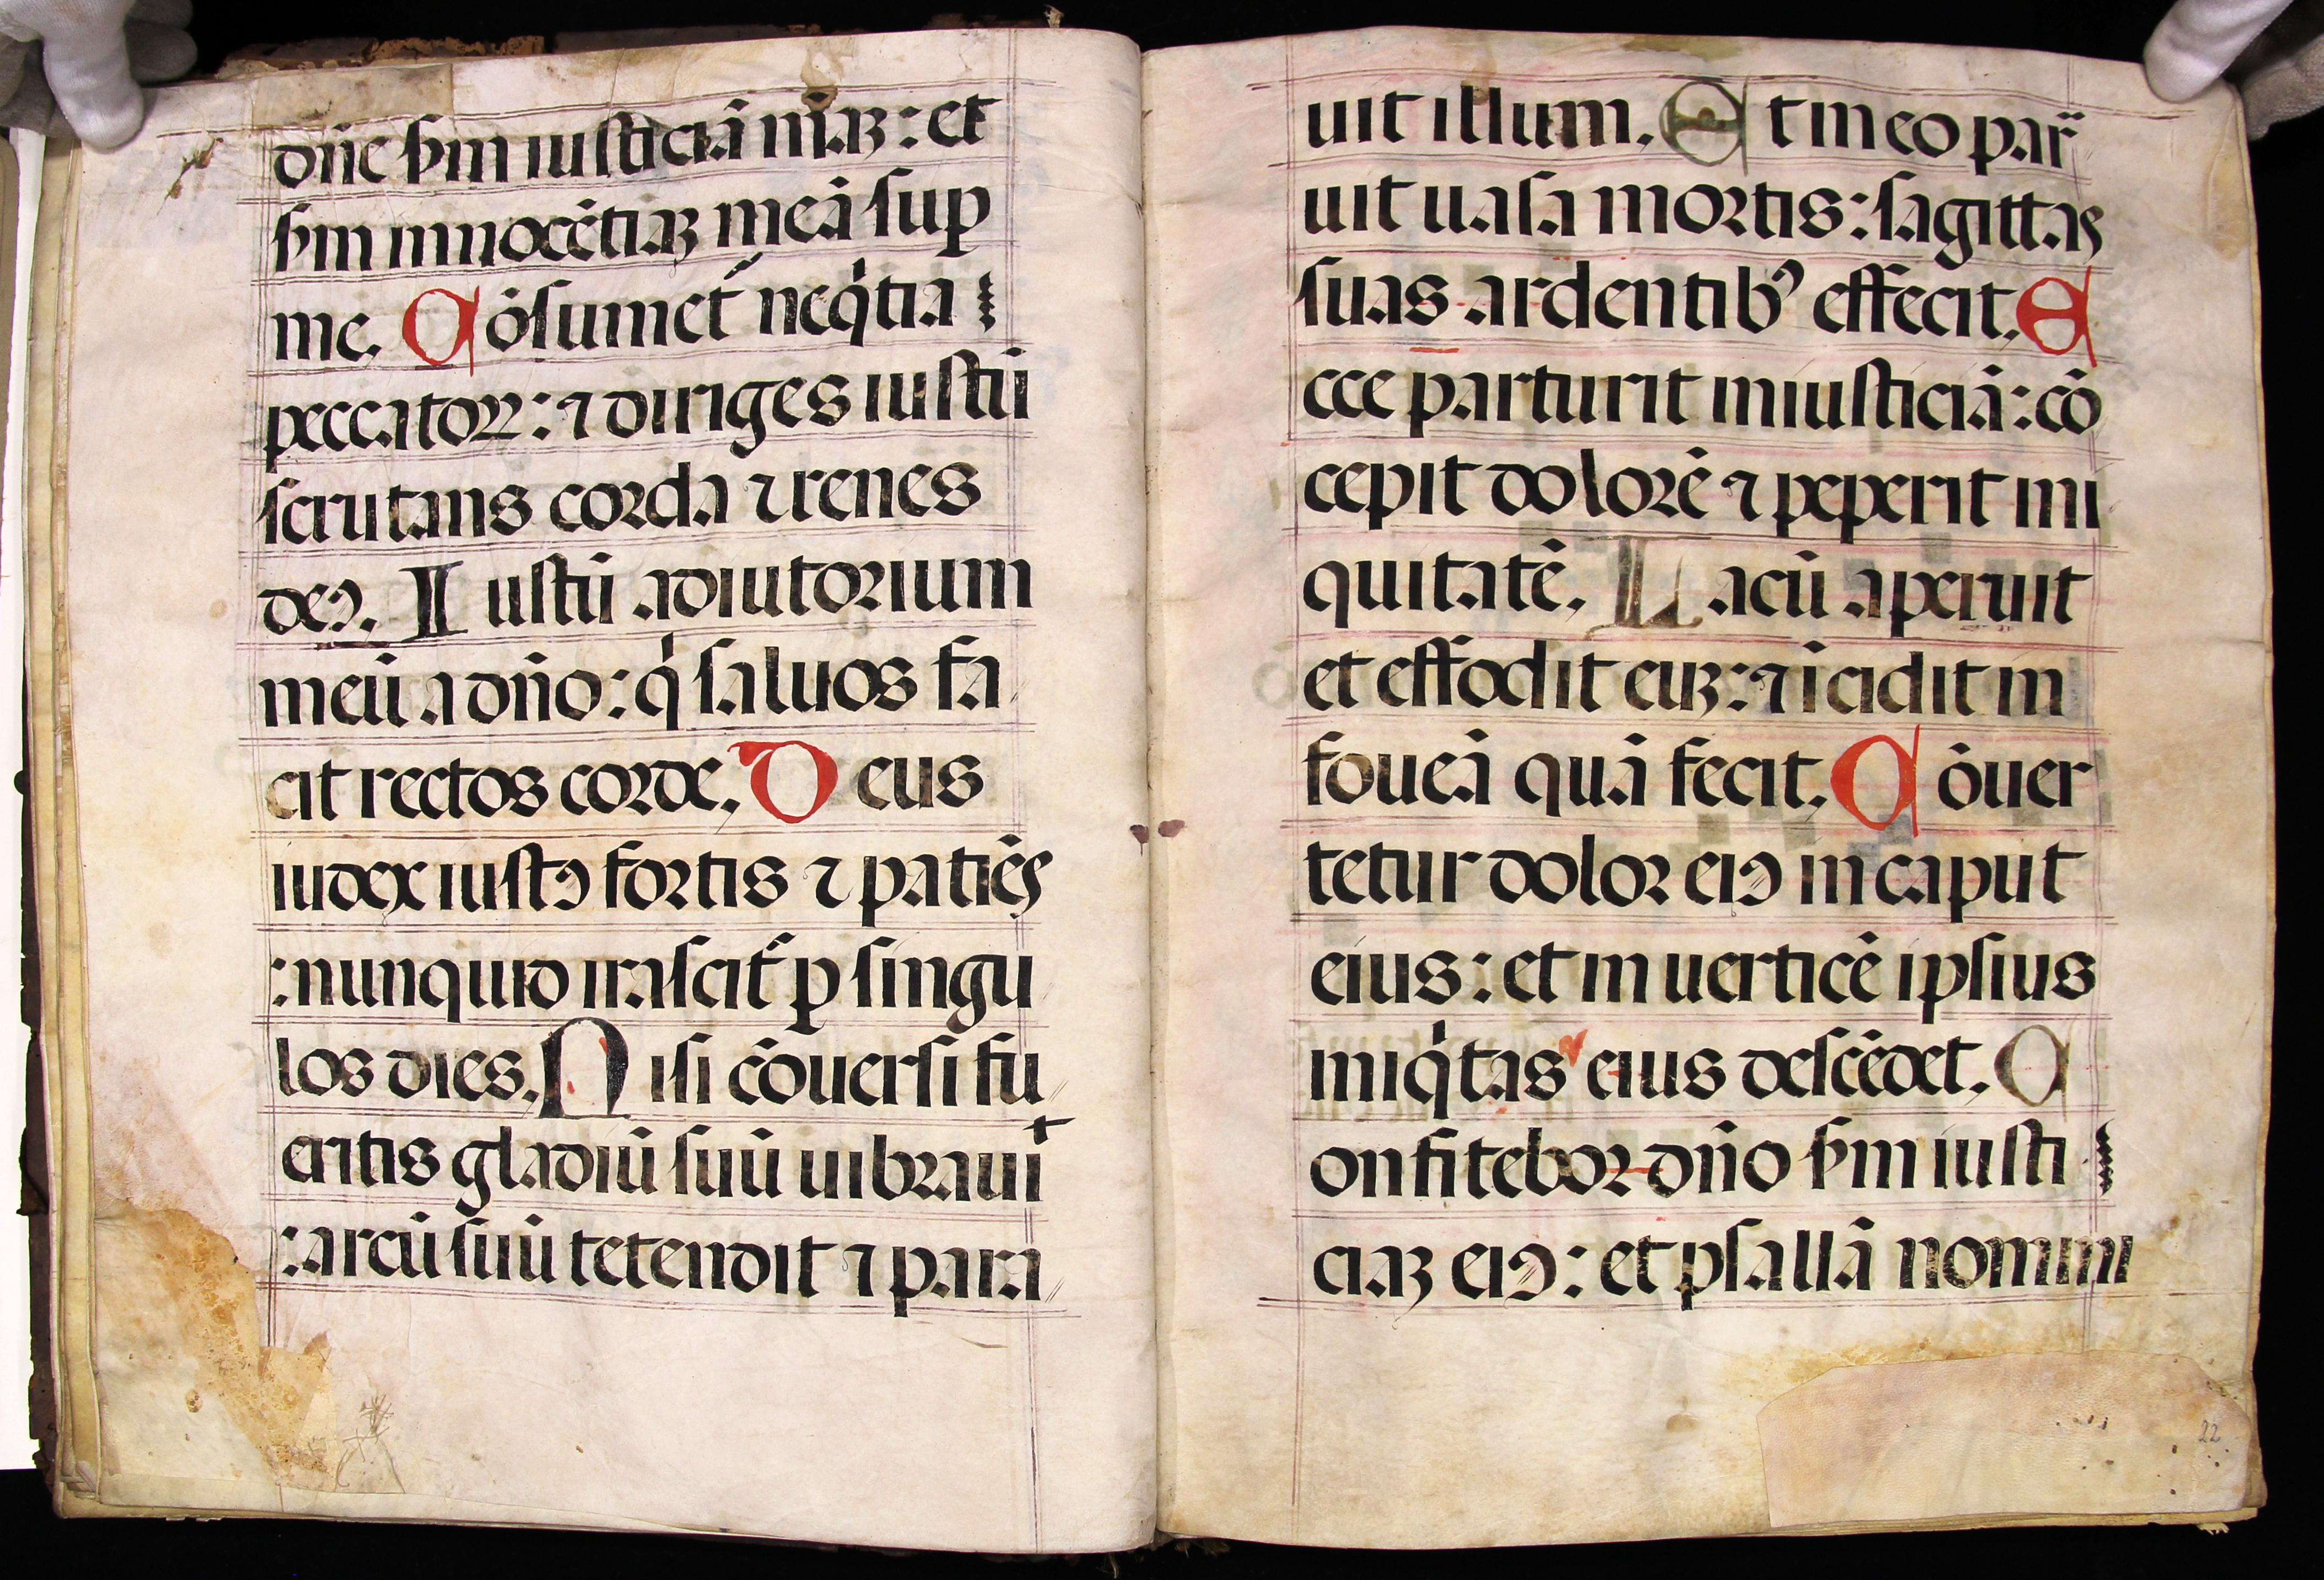 dn̄e ẜm iusticiā mꝫ: et
ẜm innocētiaꝫ meā suꝑ
me. C ōsumet᷑ neq̇tia
peccatoꝝ: ⁊ diriges iustū
scrutans corda ⁊ renes
deꝰ. I ustū adiutorium
meū a dn̄o: q̇ saluos fa
cit rectos corde. D eus
iudex iustꝰ fortis ⁊ patiēs
: nunquid irascit᷑ ꝑ singu
los dies. N isi cōuersi fu
eritis gladiū suū uibraui t
: arcū suū tetendit ⁊ para
uit illum. E t in eo par̈
uit uasa mortis: sagittas
suas ardentibꝰ effecit. E
cce parturit iniusticiā: cō
cepit dolorē ⁊ peperit ini
quitatē. L acū aperuit
et effodit euꝫ: ⁊ īcidit in
foueā quā fecit. C ōuer
tetur dolor eiꝰ in caput
eius: et in uerticē ipsius
iniq̇tas eius descēdet. C
onfitebor dn̄o ẜm iusti
ciaꝫ eiꝰ: et psallā nomini
22